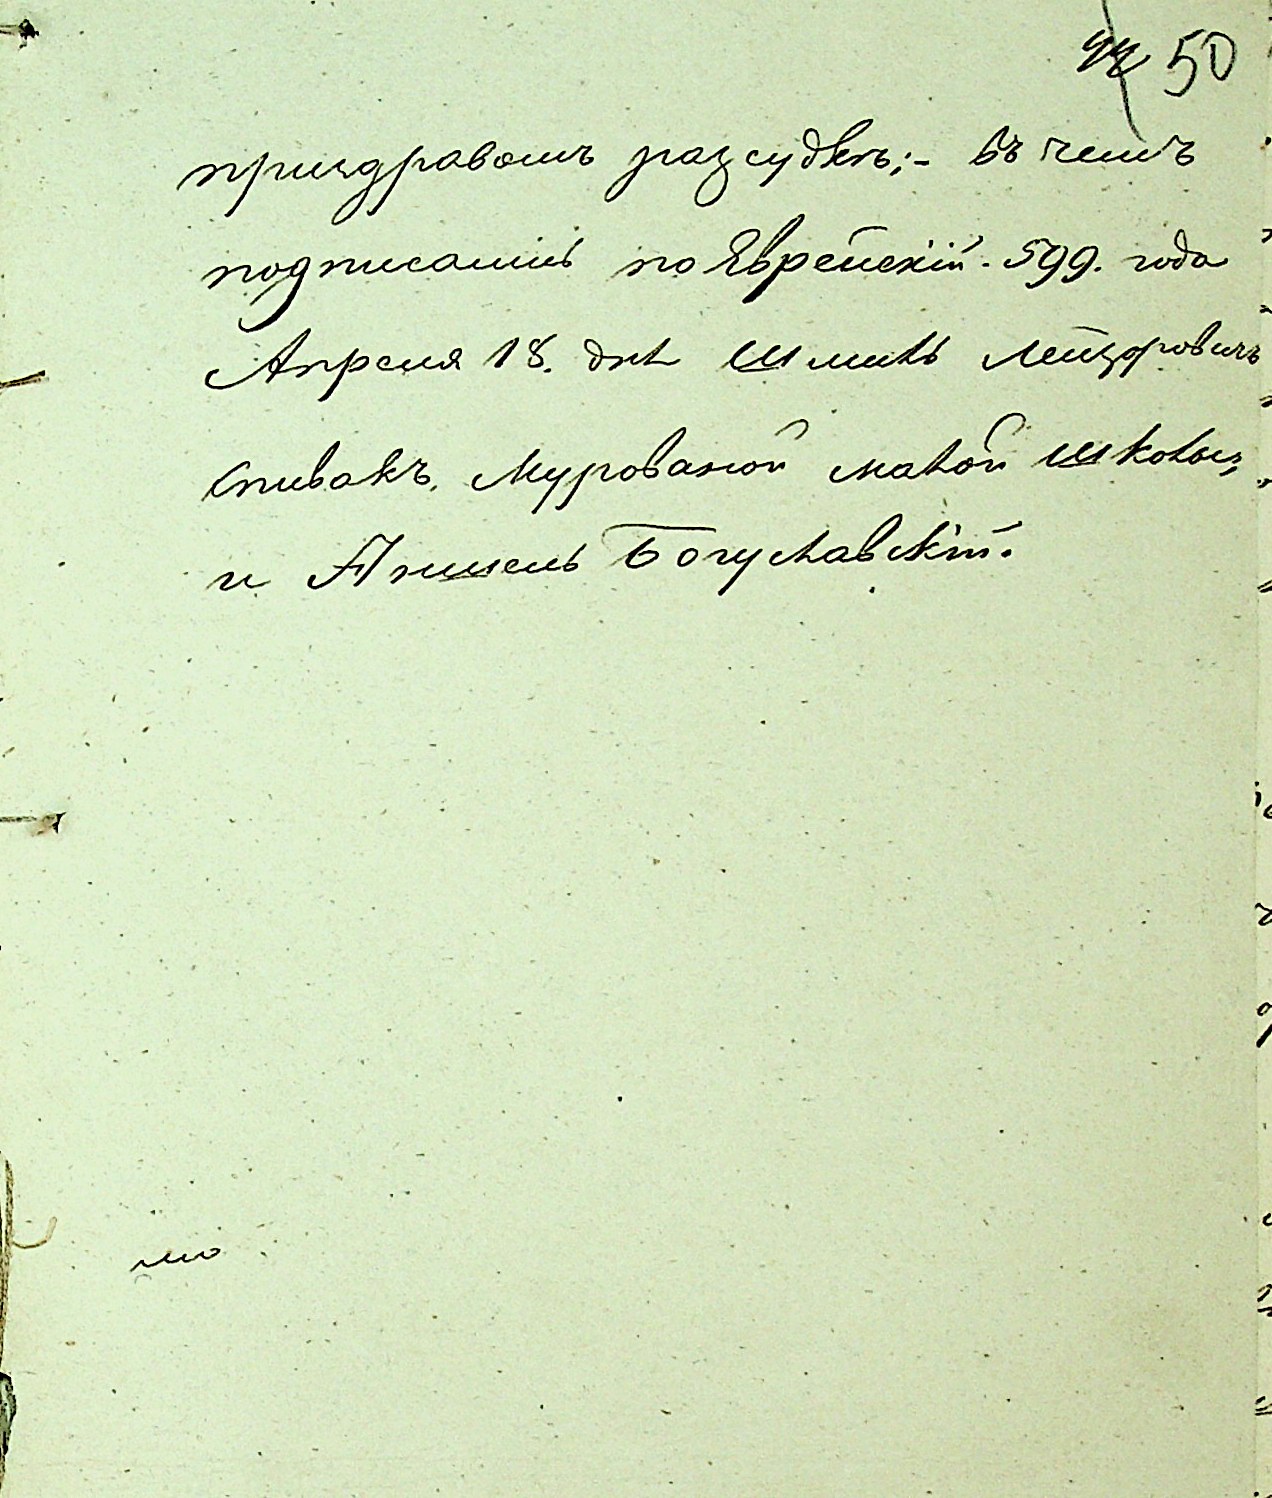 50
приздравомъ разсудкѣ;- въ чемъ
подписались по Еврейскій. 599. года
Апреля 18. дня Шмиль Лейзоровичъ
Спивакъ, Мурованой малой школы,
и Аншель Богуславскій.